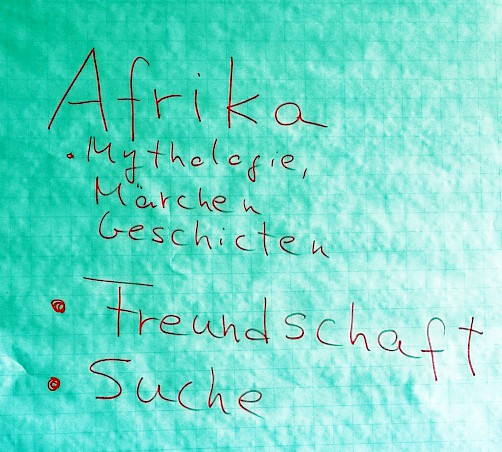 Afrika
• Mythologie,
Märchen
Geschicten
• Freundschaft
• Suche